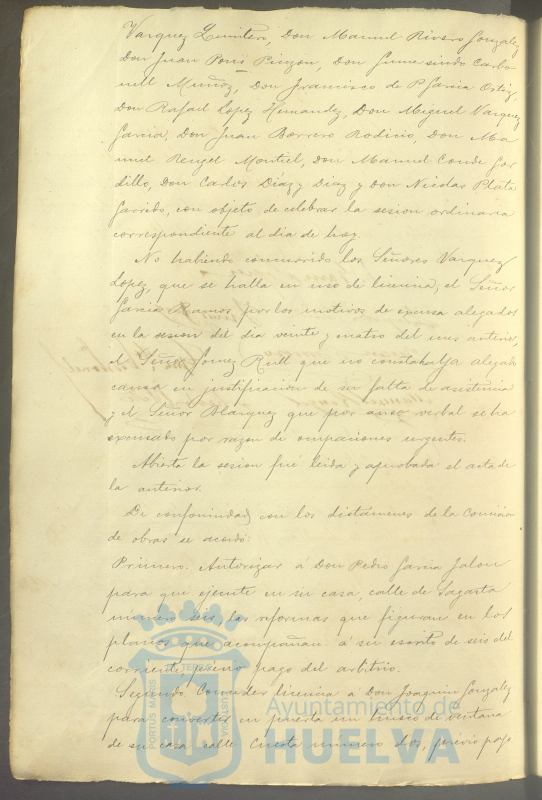 Vazquez Zenitero, Don Manuel Rivero Gonzalez
Don Juan Pons Pinzon, Don Gumersindo Carbo-
nell Muñoz, Don Francisco de P. Garcia Ortiz,
Don Rafael Lopez Hernandez, Don Miguel Vazquez
Garcia, Don Juan Borrero Rodicio, Don Ma-
nuel Rengel Montiel, Don Manuel Conde Gor-
dillo, Don Carlos Diaz y Diaz y Don Nicolas Plata
Garrido, con objeto de celebrar la sesion ordinaria
correspondiente al dia de hoy.
No habiendo concurrido los Señores Vazquez
Lopez, que se halla en uso de licencia, el Señor
Garcia Ramos por los motivos de excusa alegados
en la sesion del dia veinte y cuatro del mes anterior,
el Señor Gomez Rull que no consta haya alegado
causa en justificacion de su falta de asistencia
y el Señor Blazquez que por aviso verbal se ha
excusado por razon de ocupaciones urgentes.
Abierta la sesion fué leida y aprobada el acta de
la anterior.
De conformidad con los dictámenes de la Comision
de obras se acordó:
Primero. Autorizar á Don Pedro Garcia Jalon
para que ejecute en su casa, calle de Sagasta
número seis, las reformas que figuran en los
planos que acompañan á su escrito de seis del
corriente, previo pago del arbitrio.
Segundo. Conceder licencia a Don Joaquin Gonzalez
para convertir en puerta un hueco de ventana
de su casa calle Cuesta número dos, previo pago
PORTUS MARIS ET TERRAE CUSTODIA
Ayuntamiento de
HUELVA